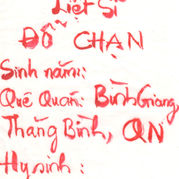 Liệt Sĩ
ĐỖ CHẠN
Sinh năm:
Quê Quán: Bình Giang,
Thăng Bình, QN
Hy sinh :